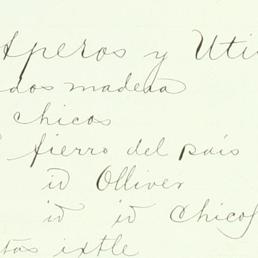 Aperos y Uti
dos madera
chicos
fierro del país
id Olliver
id id chicos
tas ixtle